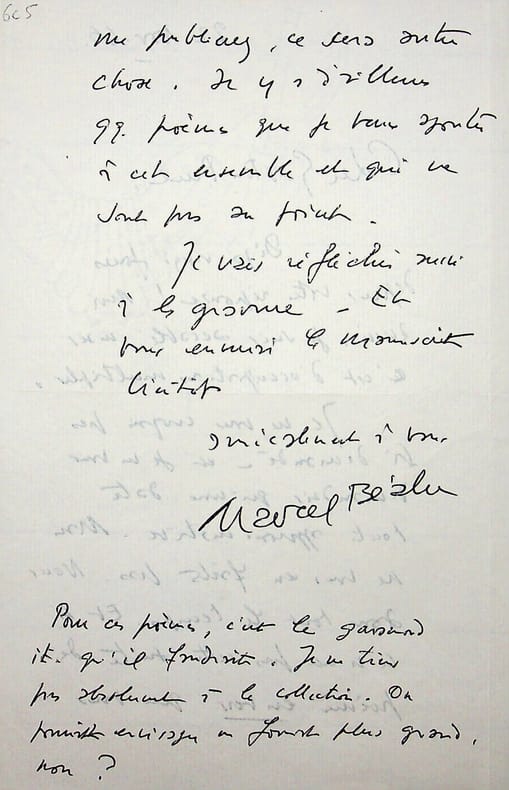 me publiez, ce sera autre
chose. Il y a d'ailleurs
qq. poèmes que je veux ajouter
à cet ensemble et qui ne
sont pas au point.
Je vais réfléchir aussi
à la gravure - Et
vous enverrai le manuscrit
bientôt
amicalement à vous
Marcel Béalu
Pour ces poèmes, c'est le
qu'il faudrait. Je ne tiens
pas absolument à la collection. On
pourrait envisager un format plus grand,
non ?